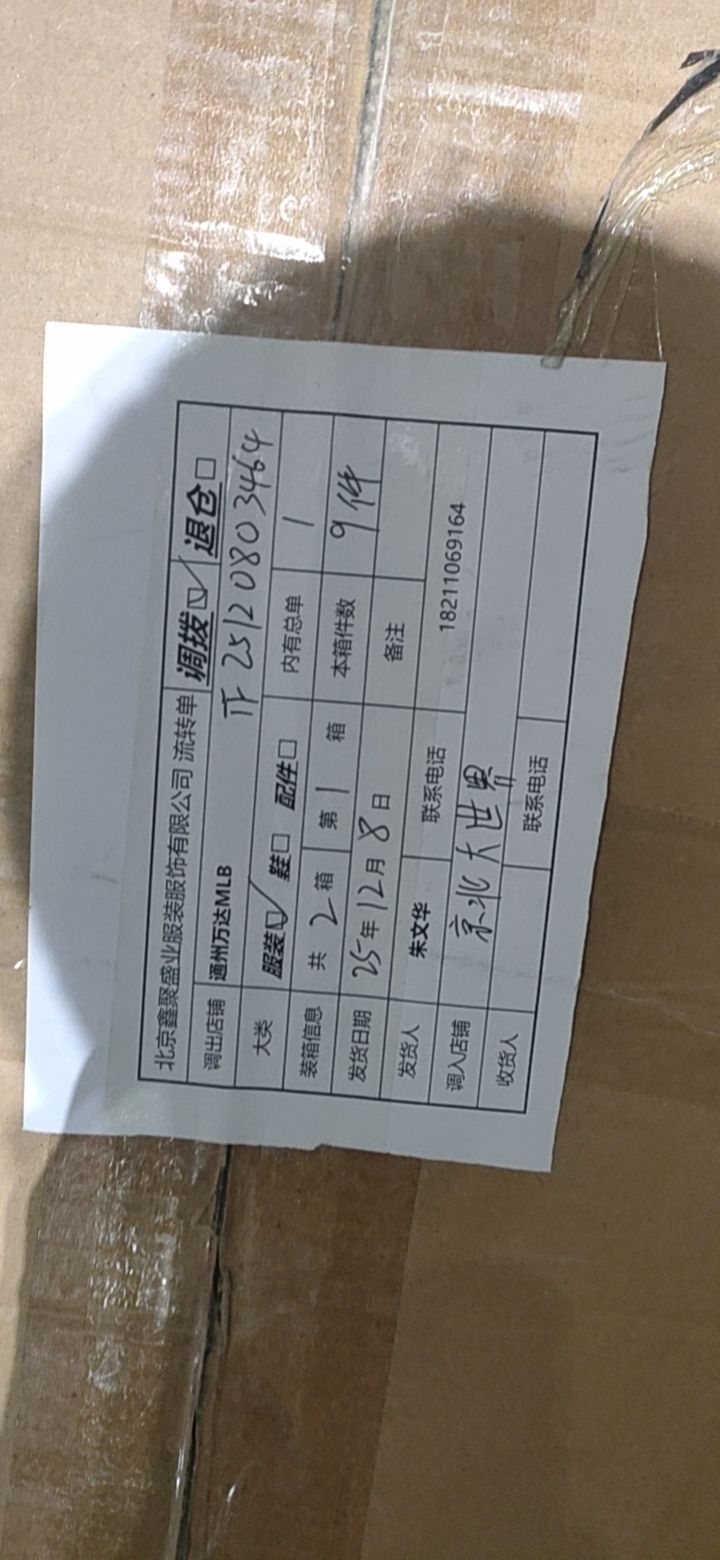 北京鑫聚盛业服装服饰有限公司 流转单 调拨☑ 退仓□
调出店铺 通州万达MLB TF 2512080 3464
大类 服装☑ 鞋□ 配件□ 内有总单 1
装箱信息 共 2 箱 第 1 箱 本箱件数 9件
发货日期 25年12月8日 备注
发货人 朱文华 联系电话 18211069164
调入店铺 京北大世界
收货人 联系电话